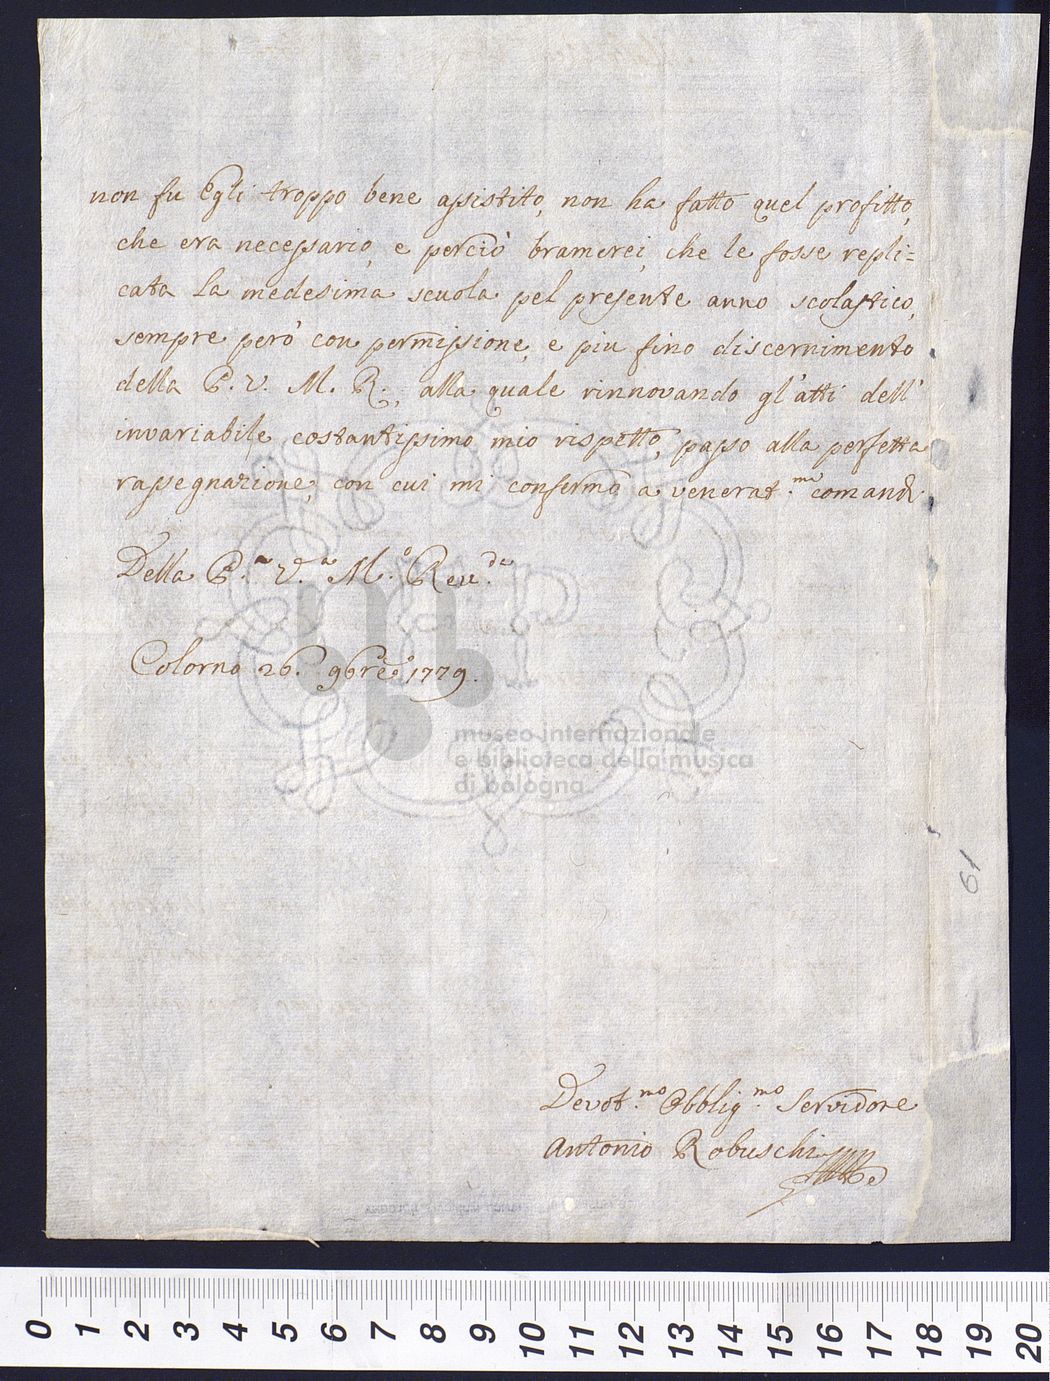 non fu Egli troppo bene assistito, non ha fatto quel profitto,
che era necessario, e perciò bramerei, che le fosse repli=
cata la medesima scuola pel presente anno scolastico,
sempre però con permissione, e piu fino discernimento
della P. V. M. R., alla quale rinnovando gl'atti dell'
invariabile costantissimo mio rispetto, passo alla perfetta
rassegnazione, con cui mi confermo a venerat.mi comandi
Della P.a V.a M.o Rev.da
Colorno 26. 9bre 1779.
museo internazionale
e biblioteca della musica
di bologna
61
Devot.mo Obblig.mo Servidore
Antonio Robuschi
0 1 2 3 4 5 6 7 8 9 10 11 12 13 14 15 16 17 18 19 20